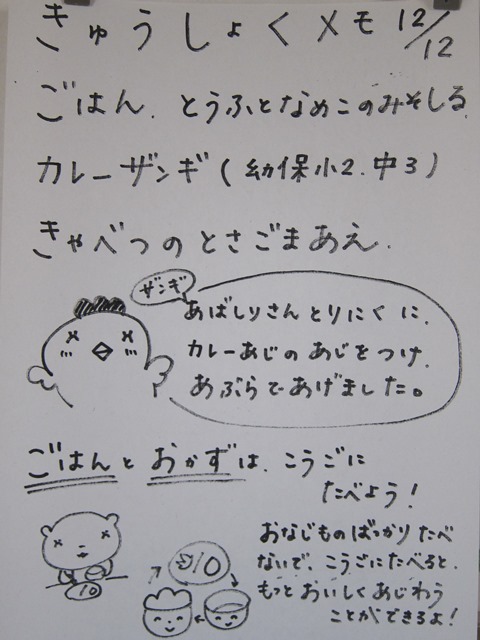 きゅうしょくメモ 12/12
ごはん. とうふとなめこのみそしる.
カレーザンギ(幼保小2.中3)
きゃべつのとさごまあえ.
ザンギ
あばしりさんとりにくに.
カレーあじのあじをつけ.
あぶらであげました。
ごはんとおかずは.こうごに
たべよう!
おなじものばっかりたべ
ないで、こうごにたべると.
もっとおいしくあじわう
ことができるよ!